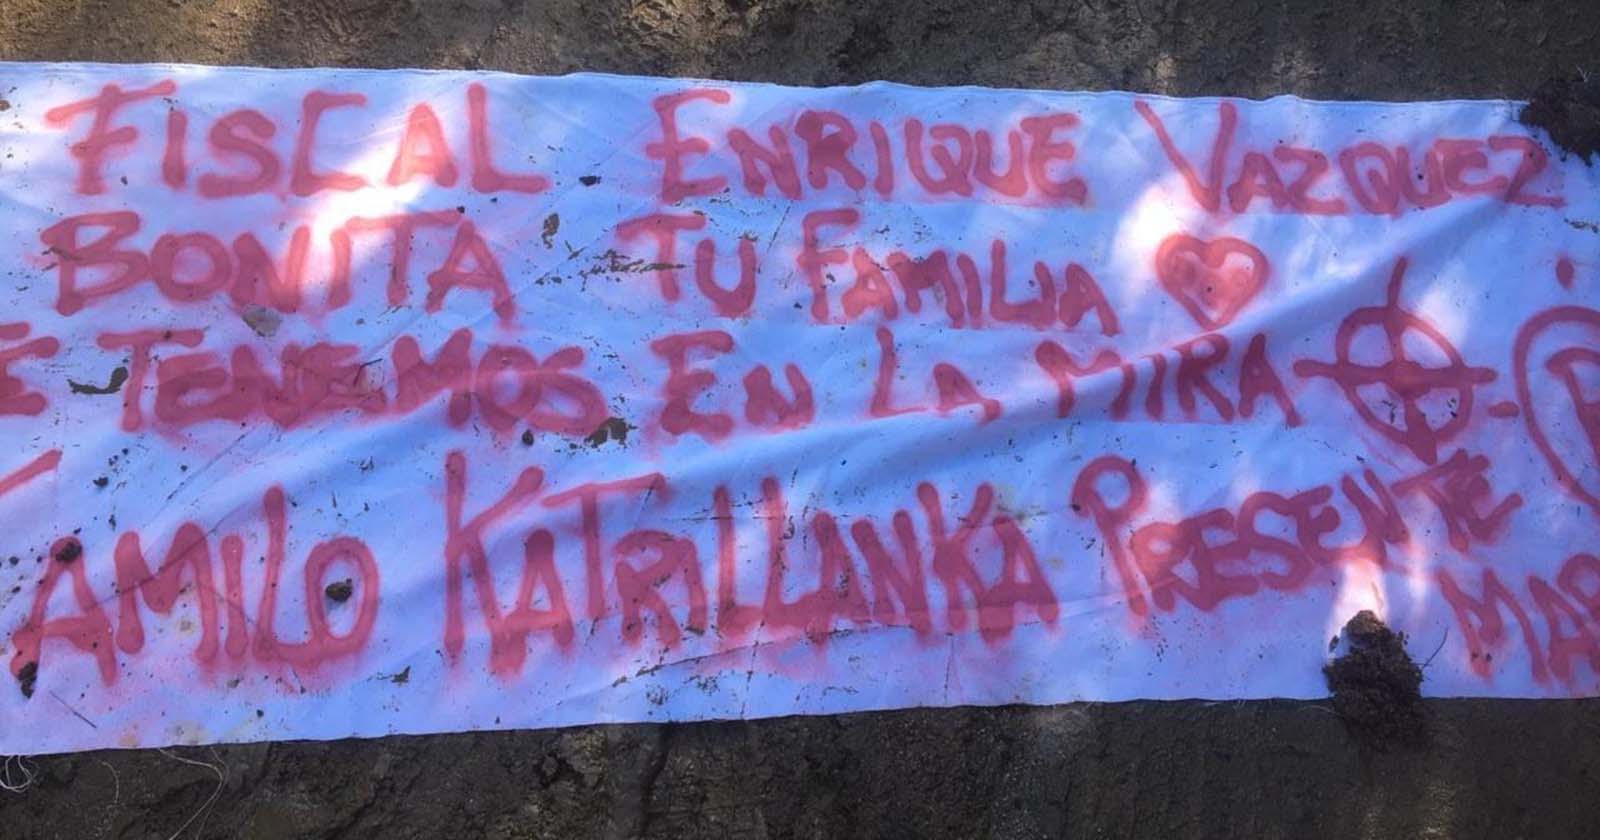 FISCAL ENRIQUE VAZQUEZ
BONITA TU FAMILIA
E TENEMOS EN LA MIRA
AMILO KATRILLANKA PRESENTE
MAR